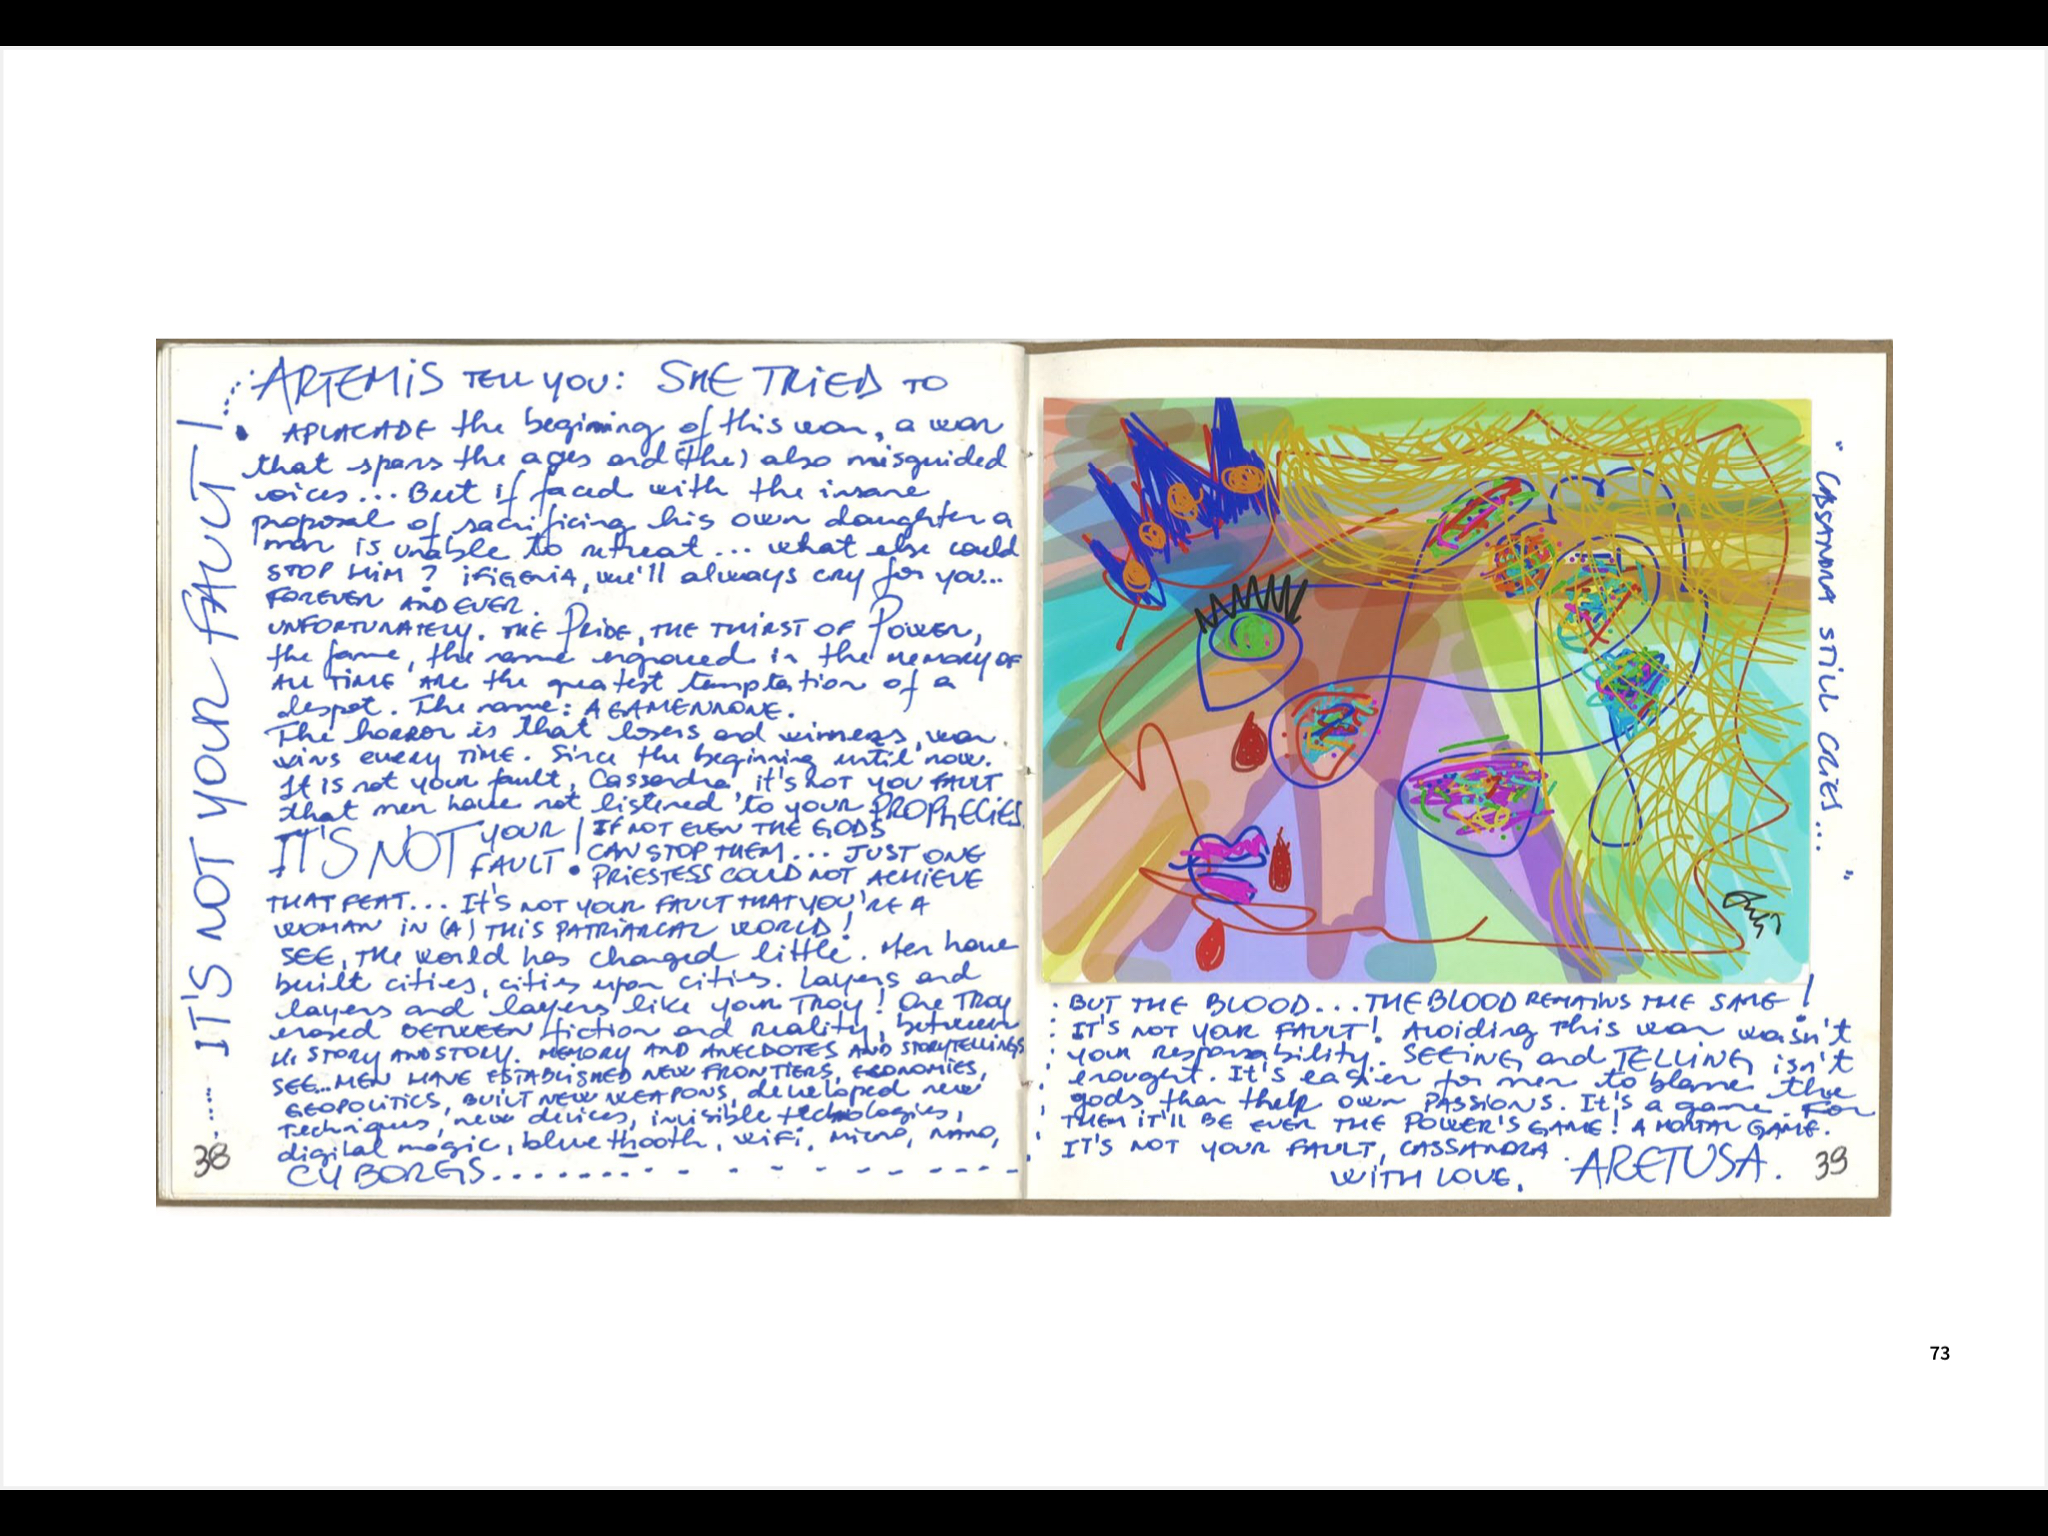 IT'S NOT YOUR FAULT!....
ARTEMIS TELL YOU: SHE TRIED TO
APLACADE the begining of this war, a war
that spans the ages and (the) also misguided
voices... But if faced with the insane
proposal of sacrificing his own daughter a
man is unable to retreat... what else could
STOP HIM? IFIGENIA, we'll always cry for you...
FOREVER AND EVER.
UNFORTUNATELY. THE PRIDE, THE THIRST OF POWER,
the fame, the name engraved in the MEMORY OF
ALL TIME ARE the greatest temptation of a
despot. The name: AGAMENNONE.
The horror is that losers and winners, war
wins every TIME. Since the beginning until now.
It is not your fault, Cassandra, it's NOT YOU FAULT
that men have not listened to your PROPHECIES.
IT'S NOT YOUR FAULT!
IF NOT EVEN THE GODS
CAN STOP THEM... JUST ONE
PRIESTESS COULD NOT ACHIEVE
THAT FEAT... IT'S NOT YOUR FAULT THAT YOU'RE A
WOMAN IN (A) THIS PATRIARCAL WORLD!
SEE, THE world has changed little. Men have
built cities, cities upon cities. Layers and
layers and layers like your TROY! One TROY
erased BETWEEN fiction and reality, between
HISTORY AND STORY. MEMORY AND ANECDOTES AND STORYTELLINGS
SEE...MEN HAVE ESTABLISHED NEW FRONTIERS, ECONOMIES,
GEOPOLITICS, BUILT NEW WEAPONS, developed new
Techniques, new devices, invisible technologies,
digital magic, blue thooth, WIFI, MICRO, NANO,
CYBORGS.......
38
"CASSANDRA STILL CRIES..."
BUT THE BLOOD...THE BLOOD REMAINS THE SAME!
IT'S NOT YOUR FAULT! Avoiding this war wasn't
your responsability. SEEING and TELLING isn't
enought. It's easier for men to blame the
gods than their own PASSIONS. It's a game. For
THEM IT'LL BE EVER THE POWER'S GAME! A MORTAL GAME.
IT'S NOT YOUR FAULT, CASSANDRA.
WITH LOVE, ARETUSA.
39
73